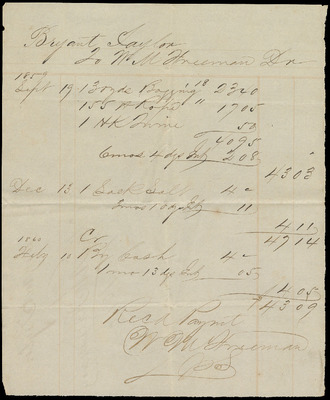 Bryant Taylor
To W M Freeman Dr
1859
Sept 19 130 yds Bagging 18 2340
155 lb Rope 11 1705
1 HK Twine 50
4095
6 mos 4 dys Int 208
4303
Dec 13 1 Sack Salt 4 00
3 mos 10 dys Int 11
411
4714
1860 Cr
Feby 11 By Cash 4 00
1 mo 13 dys Int 05
405
4309
Recd Paymt
W M Freeman